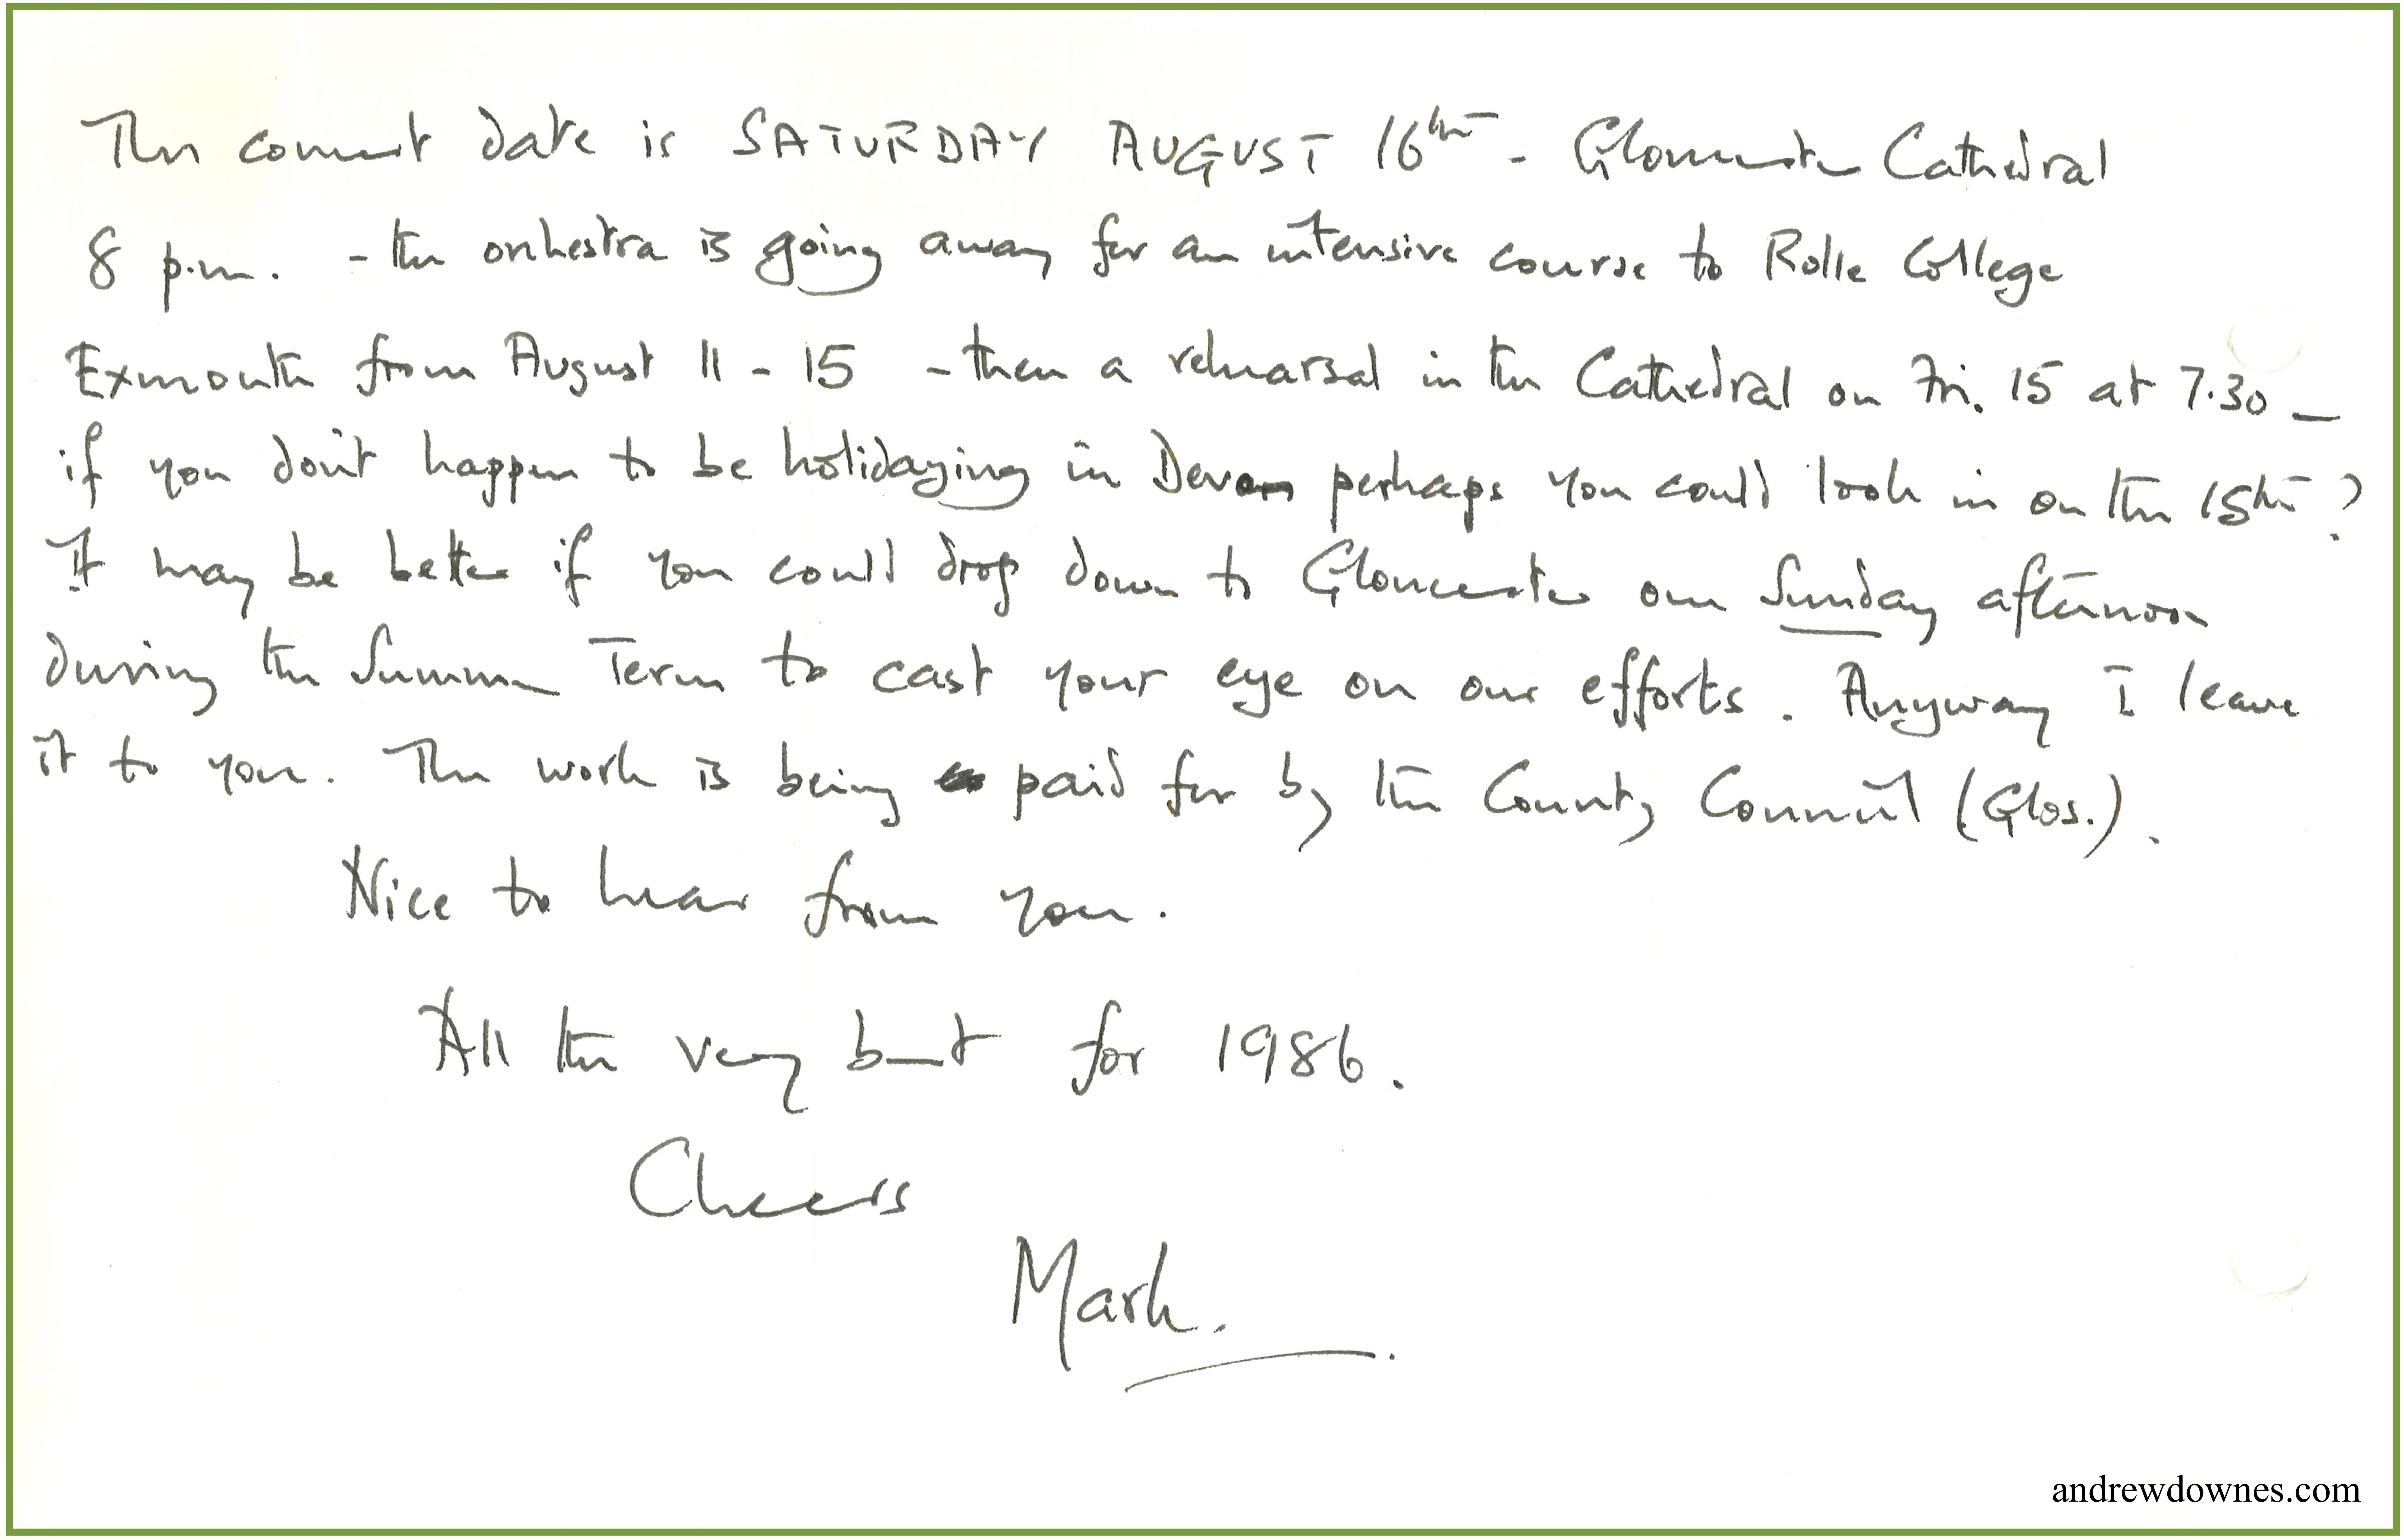 The concert date is SATURDAY AUGUST 16th - Gloucester Cathedral
8 p.m. - the orchestra is going away for an intensive course to Rolle College
Exmouth from August 11 - 15 - then a rehearsal in the Cathedral on Fri. 15 at 7.30 -
if you don't happen to be holidaying in Devon perhaps you could look in on the 15th?
It may be better if you could drop down to Gloucester one Sunday afternoon
during the Summer Term to cast your eye on our efforts. Anyway I leave
it to you. The work is being paid for by the County Council (Glos.).
Nice to hear from you.
All the very best for 1986.
Cheers
Mark.
andrewdownes.com